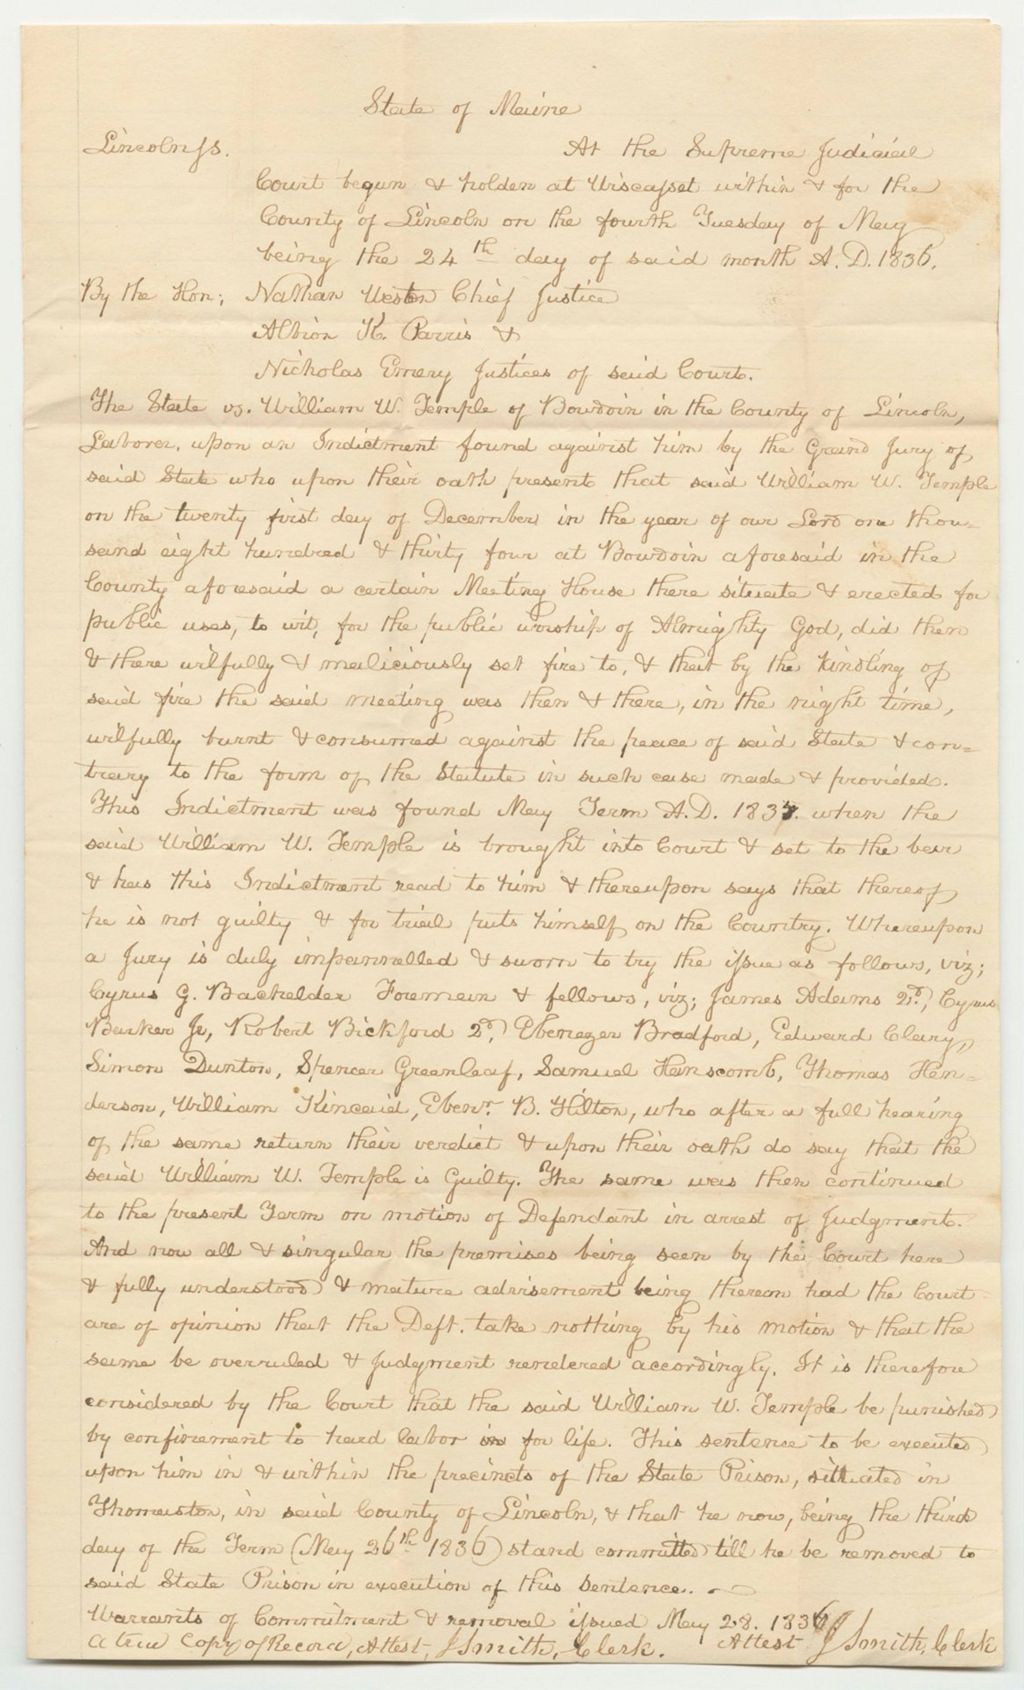 State of Maine
Lincoln ss. At the Supreme Judicial
Court begun & holden at Wiscasset within & for the
County of Lincoln on the fourth Tuesday of May
being the 24th day of said month A.D. 1836.
By the Hon; Nathan Weston Chief Justice
Albion K. Parris &
Nicholas Emery Justices of said Court.
The State vs. William W. Temple of Bowdoin in the County of Lincoln,
Laborer, upon an Indictment found against him by the Grand Jury of
said State who upon their oath present that said William W. Temple
on the twenty first day of December in the year of our Lord one thou-
sand eight hundred & thirty four at Bowdoin aforesaid in the
County aforesaid a certain Meeting House there situate & erected for
public uses, to wit, for the public worship of Almighty God, did then
& there wilfully & maliciously set fire to, & that by the kindling of
said fire the said meeting was then & there, in the night time,
wilfully burnt & consumed against the peace of said State & con-
trary to the form of the Statute in such case made & provided.
This Indictment was found May Term A.D. 183 when the
said William W. Temple is brought into Court & set to the bar
& has this Indictment read to him & thereupon says that thereof
he is not guilty & for trial puts himself on the Country. Whereupon
a Jury is duly impannelled & sworn to try the issue as follows, viz;
Cyrus G. Bachelder Foreman & fellows, viz; James Adams 2d, Cyrus
Barker Jr, Robert Bickford 2d, Ebenezer Bradford, Edward Clary,
Simon Dunton, Spencer Greenleaf, Samuel Hanscomb, Thomas Hen-
derson, William Kincaid, Ebenr. B. Hilton, who after a full hearing
of the same return their verdict & upon their oath do say that the
said William W. Temple is Guilty. The same was then continued
to the present Term on motion of Defendant in arrest of Judgment.
And now all & singular the premises being seen by the Court here
& fully understood & mature advisement being thereon had the Court
are of opinion that the Deft. take nothing by his motion & that the
same be overruled & Judgment rendered accordingly. It is therefore
considered by the Court that the said William W. Temple be punished
by confinement to hard labor for life. This sentence to be executed
upon him in & within the precincts of the State Prison, situated in
Thomaston, in said County of Lincoln, & that he now, being the third
day of the Term (May 26th 1836) stand committed till he be removed to
said State Prison in execution of this sentence.
Warrants of Commitment & removal issued May 28. 1836
A true Copy of Record, Attest, J Smith, Clerk. Attest J Smith, Clerk